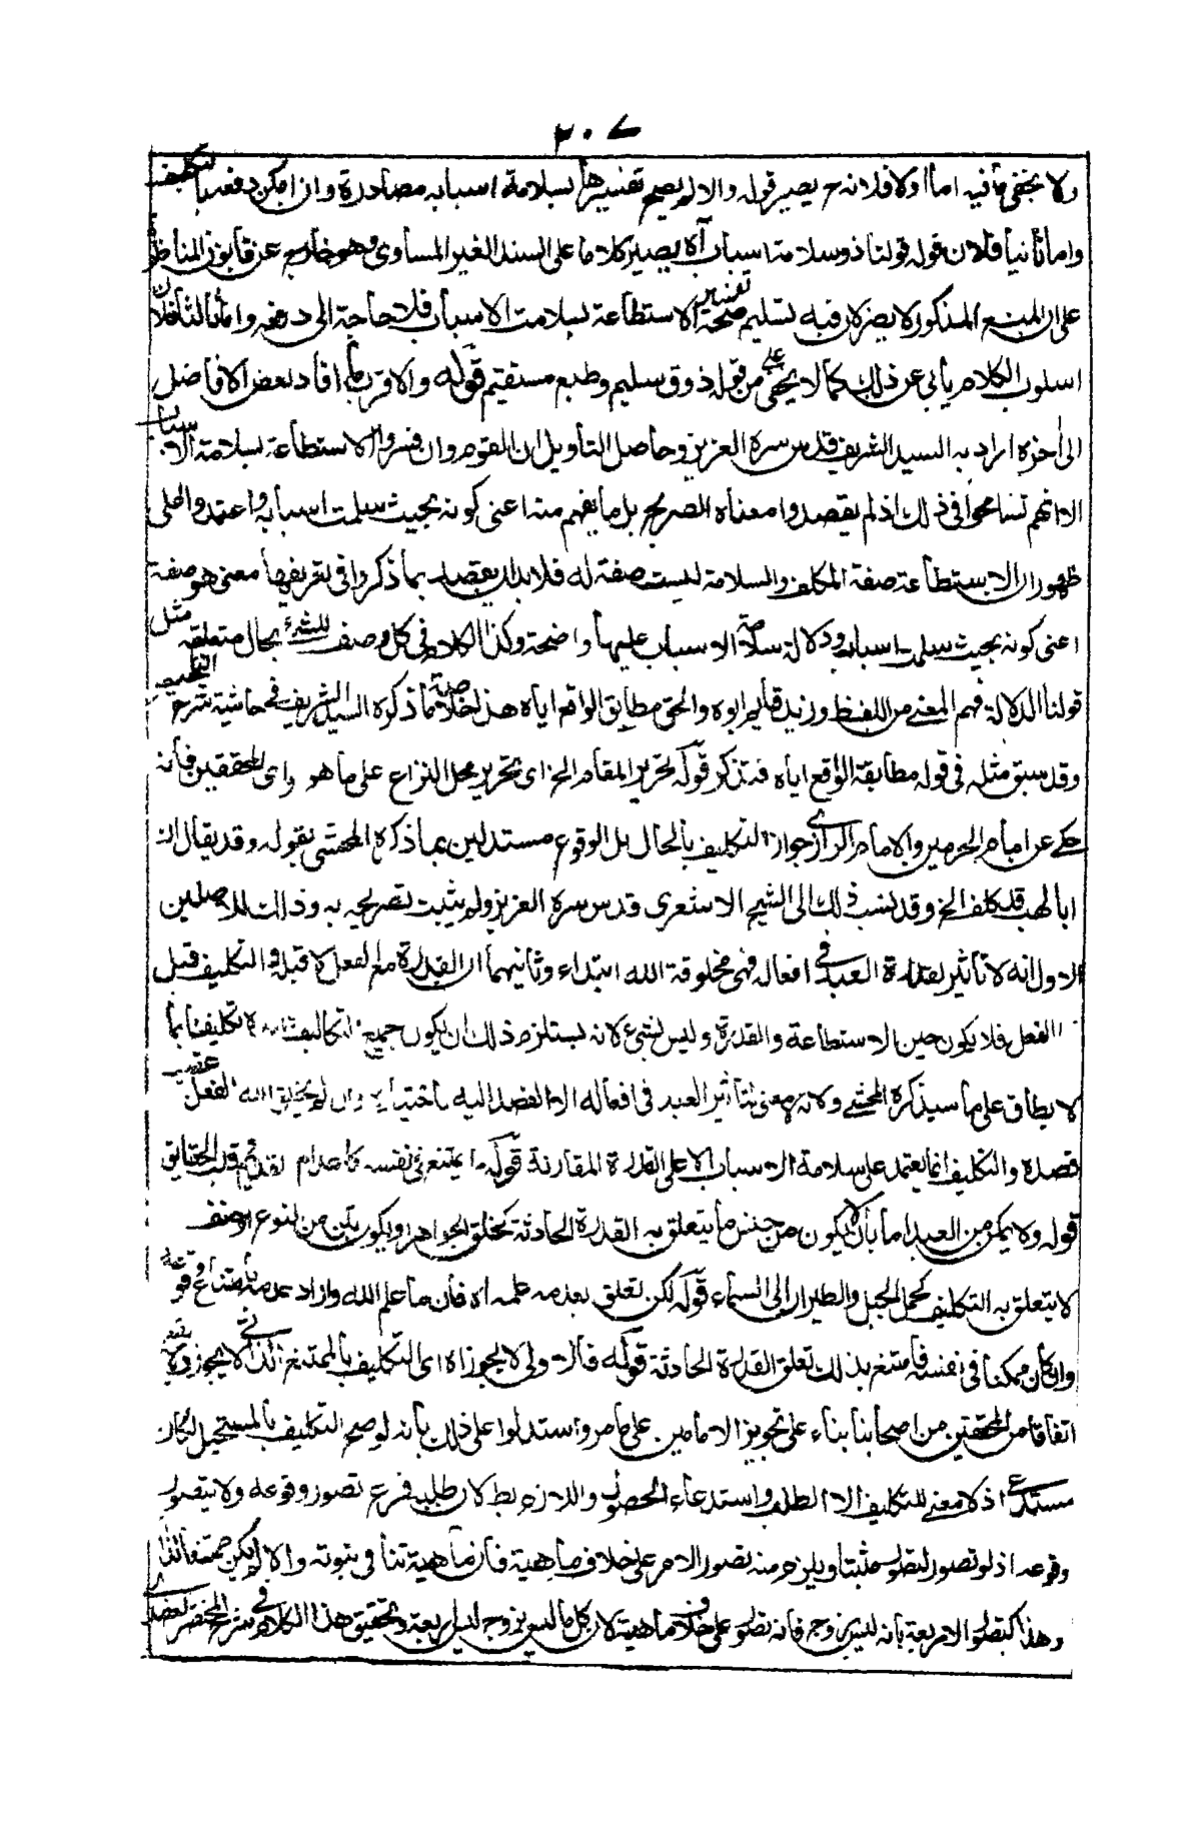 ٣٠٧
ولا يخفى ما فيه اما اولا فلانه ح يصير قوله والا لم يصح تفسيرها بسلامة اسبابه مصادرة وان امكن دفعه بالتكليف
واما ثانيا فلان قوله قولنا ذو سلامة اسباب آه يصير كلاما على السند الغير المساوى وهو خارج عن قانون المناظرة
على ان المنع المذكور لا يضر لان فيه تسليم صحة تفسير الاستطاعة بسلامت الاسباب فلا حاجة الى دفعه واما ثالثا فلان
اسلوب الكلام يأبى عن ذلك كما لا يخفى على من قوله ذوق سليم وطبع مستقيم قوله والاقرب ما افاد بعض الافاضل
الى اخره اراد به السيد الشريف قدس سره العزيز وحاصل التأويل ان القوم وان فسروا الاستطاعة بسلامة الاسباب
الا انهم تسامحوا فى ذلك اذ لم يقصدوا معناه الصريح بل ما يفهم منه اعنى كونه بحيث سلمت اسبابه واعتمدوا على
ظهور ان الاستطاعة صفة المكلف والسلامة ليست صفة له فلا بد ان يقصد بما ذكروا فى تعريفها معنى هو صفة
اعنى كونه بحيث سلمت اسبابه ودلالة سلامة الاسباب عليها واضحة وكذا الكلام فى كل وصف للشئ بحال متعلقه مثل
قولنا الدلالة فهم المعنى من اللفظ وزيد قايم ابوه والحق مطابق الواقع اياه هذا خلاصة ما ذكره السيد الشريف فى حاشية شرح التلخيص
وقد سبق مثله فى قوله مطابقة الواقع اياه فتذكر قوله تحرير المقام الخ اى تحرير محل النزاع على ما هو راى المحققين فانه
حكى عن امام الحرمين والامام الرازى جواز التكليف بالمحال بل الوقوع مستدلين بما ذكره المحشى بقوله وقد يقال ان
ابا لهب قد كلف الخ وقد نسب ذلك الى الشيخ الاشعرى قدس سره العزيز ولم يثبت تصريحه به وذالك للاصلين
الاول انه لا تأثير لقدرة العبد فى افعاله فهى مخلوقة الله ابتداء وثانيهما ان القدرة مع الفعل لا قبله والتكليف قبل
الفعل فلا يكون حين الاستطاعة والقدرة وليس بشئ لانه يستلزم ذلك ان يكون جميع التكاليف تكليفا بما
لا يطاق على ما سيذكره المحشى ولانه لا معنى لتأثير العبد فى افعاله الا القصد اليه باختياره وان لم يخلق الله الفعل عقيب
قصده والتكليف انما يعتمد على سلامة الاسباب لا على القدرة المقارنة قوله ما يمتنع فى نفسه كاعدام القديم وقلب الحقايق
قوله ولا يمكن من العبد اما بان لا يكون من جنس ما يتعلق به القدرة الحادثة كخلق الجواهر او يكون لكن من نوع او صنف
لا يتعلق به التكليف كحمل الجبل والطيران الى السماء قوله لكن تعلق بعدمه علمه آه فان ما علم الله واراد عدمه امتنع وقوعه
وان كان ممكنا فى نفسه فامتنع بذلك تعلق القدرة الحادثة قوله فالاولى لا يجوز آه اى التكليف بالممتنع الذاتى لا يجوز ولا يقع
اتفاقا من المحققين من اصحابنا بناء على تجويز الامامين على ما مر واستدلوا على ذلك بانه لو صح التكليف بالمستحيل لكان
مستدعى اذ لا معنى للتكليف الا الطلب واستدعاء الحصول واللازم بط لان طلبه فرع تصور وقوعه ولا يتصور
وقوعه اذ لو تصور لتصور مثبتا ويلزم منه تصور الامر على خلاف ماهيته فان ماهيته تنافى ثبوته والا لم يكن ممتنعا لذاته
وهذا كتصور الاربعة بانه ليس بزوج فانه تصور على خلاف ماهيته لان كل ما ليس بزوج ليس باربعة وتحقيق هذا الكلام فى شرح المختصر